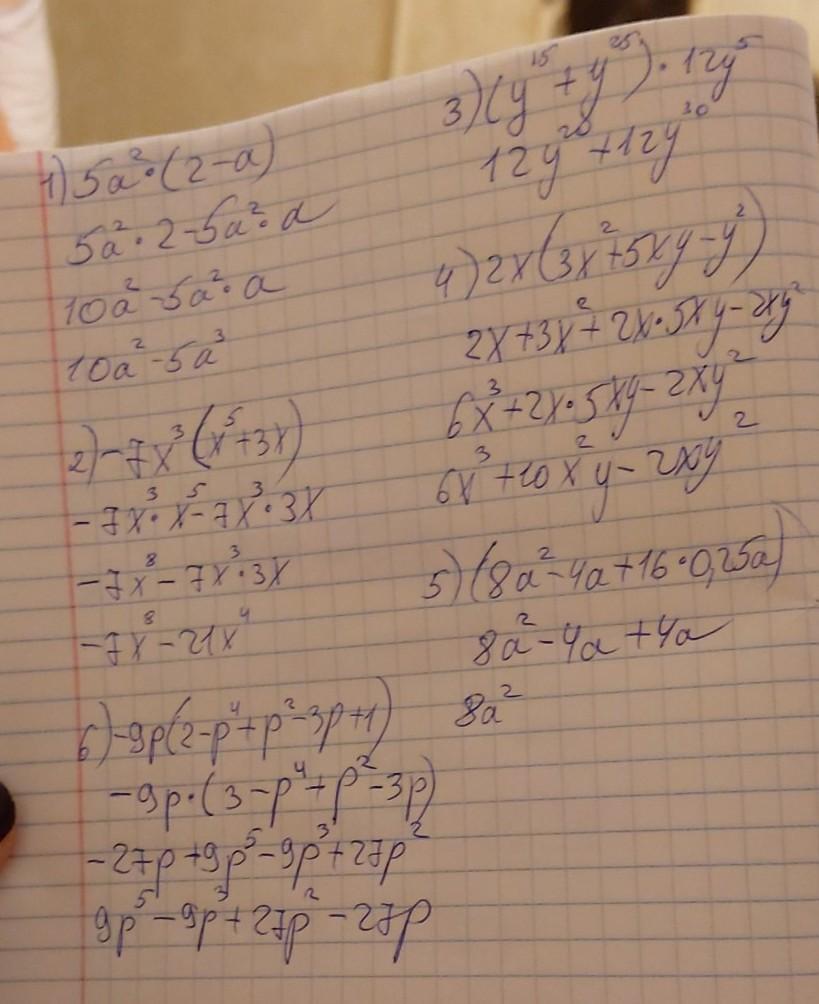 1) 5a²·(2-a)
5a²·2-5a²·a
10a²-5a²·a
10a²-5a³
2) -7x³(x⁵+3x)
-7x³·x⁵-7x³·3x
-7x⁸-7x³·3x
-7x⁸-21x⁴
6) -9p(2-p⁴+p²-3p+1)
-9p·(3-p⁴+p²-3p)
-27p+9p⁵-9p³+27p²
9p⁵-9p³+27p²-27p
3) (y¹⁵+y²⁵)·12y⁵
12y²⁰+12y³⁰
4) 2x(3x²+5xy-y²)
2x+3x²+2x·5xy-2xy²
6x³+2x·5xy-2xy²
6x³+10x²y-2xy²
5) (8a²-4a+16·0,25a)
8a²-4a+4a
8a²